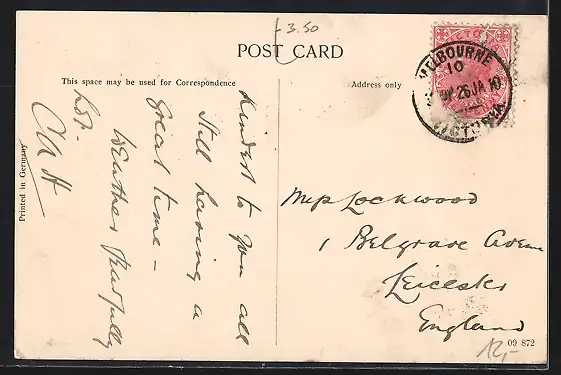 3.50
POST CARD
This space may be used for Correspondence
Address only
VICTORIA
MELBOURNE
10
26 JA 10
VICTORIA
Kindest to you all
Still having a
great time -
Weather fearfully
hot.
Printed in Germany
Miss Lockwood
1 Belgrave Avenue
Leicester
England
09 872
12,-